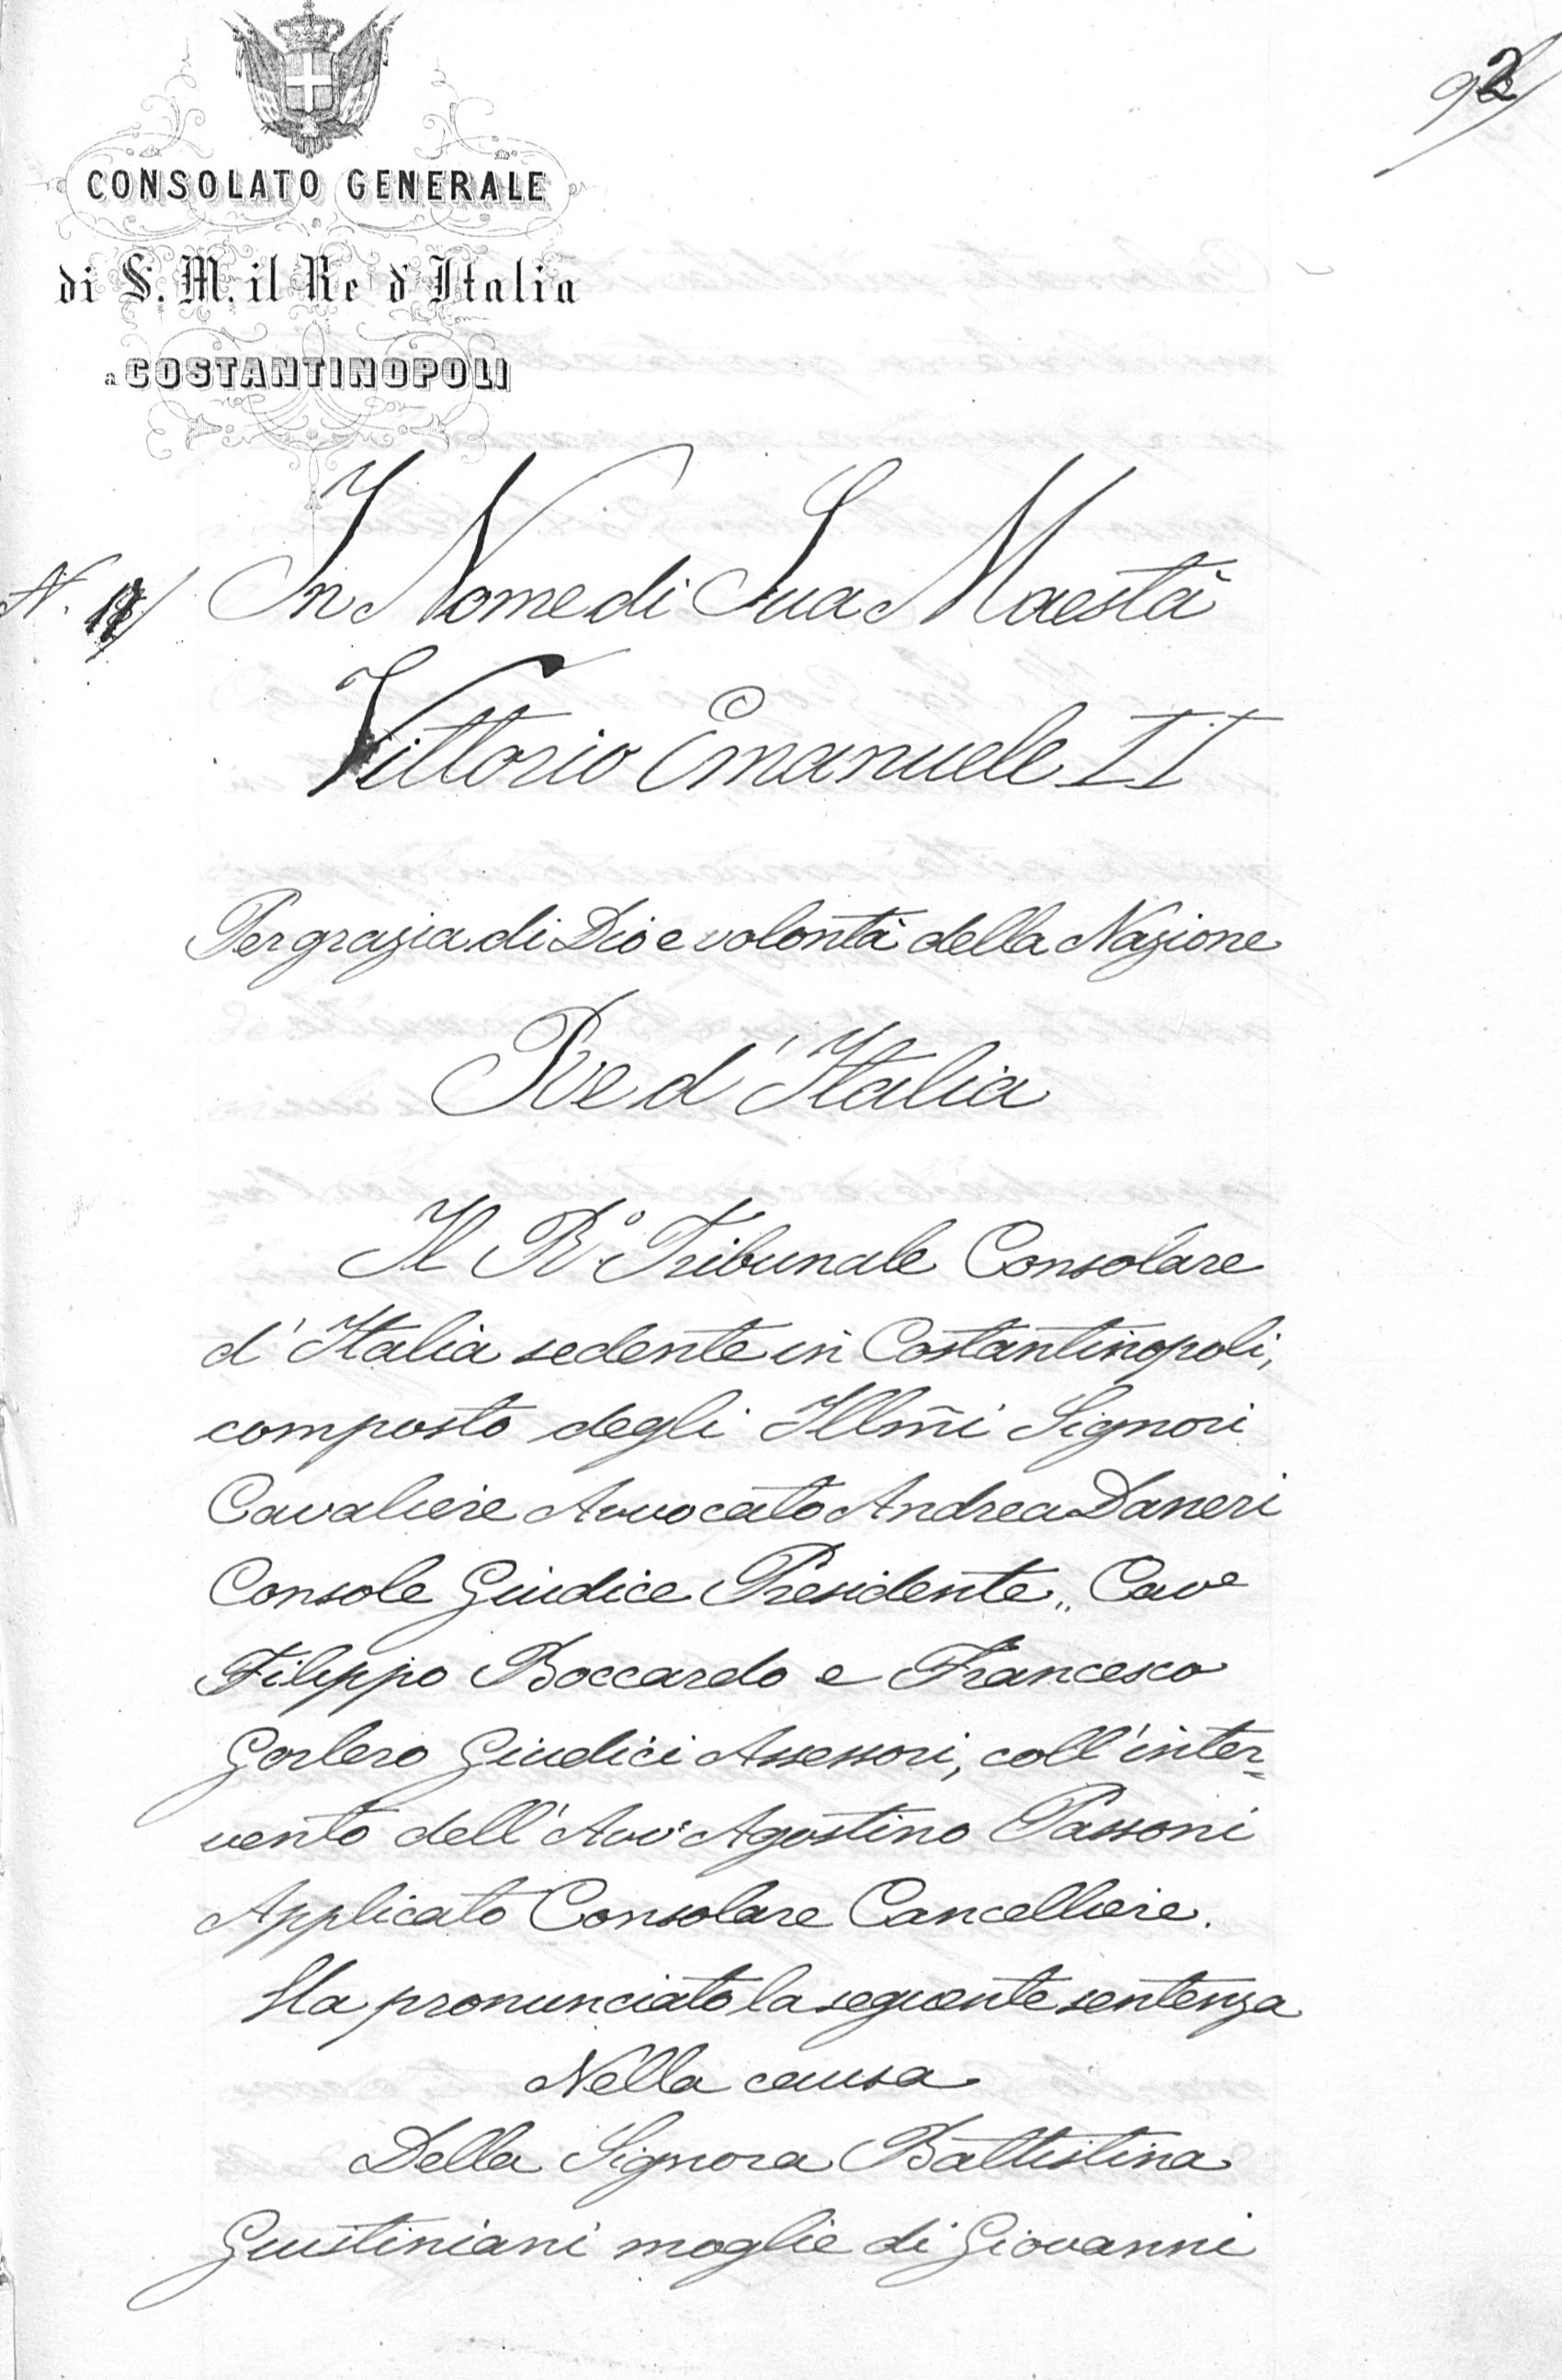 2
CONSOLATO GENERALE
di S. M. il Re d'Italia
a COSTANTINOPOLI
N.
In Nome di Sua Maestà
Vittorio Emanuele II
Per grazia di Dio e volontà della Nazione
Re d'Italia
Il R.º Tribunale Consolare
d'Italia sedente in Costantinopoli,
composto degli Illm̃i Signori
Cavaliere Avvocato Andrea Daneri
Console Giudice Presidente,, Cave
Filippo Boccardo e Francesco
Gorlero Giudici Assessori, coll'inter=
vento dell'Avv Agostino Passoni
Applicato Consolare Cancelliere.
Ha pronunciato la seguente sentenza
Nella causa
Della Signora Battistina
Giustiniani moglie di Giovanni